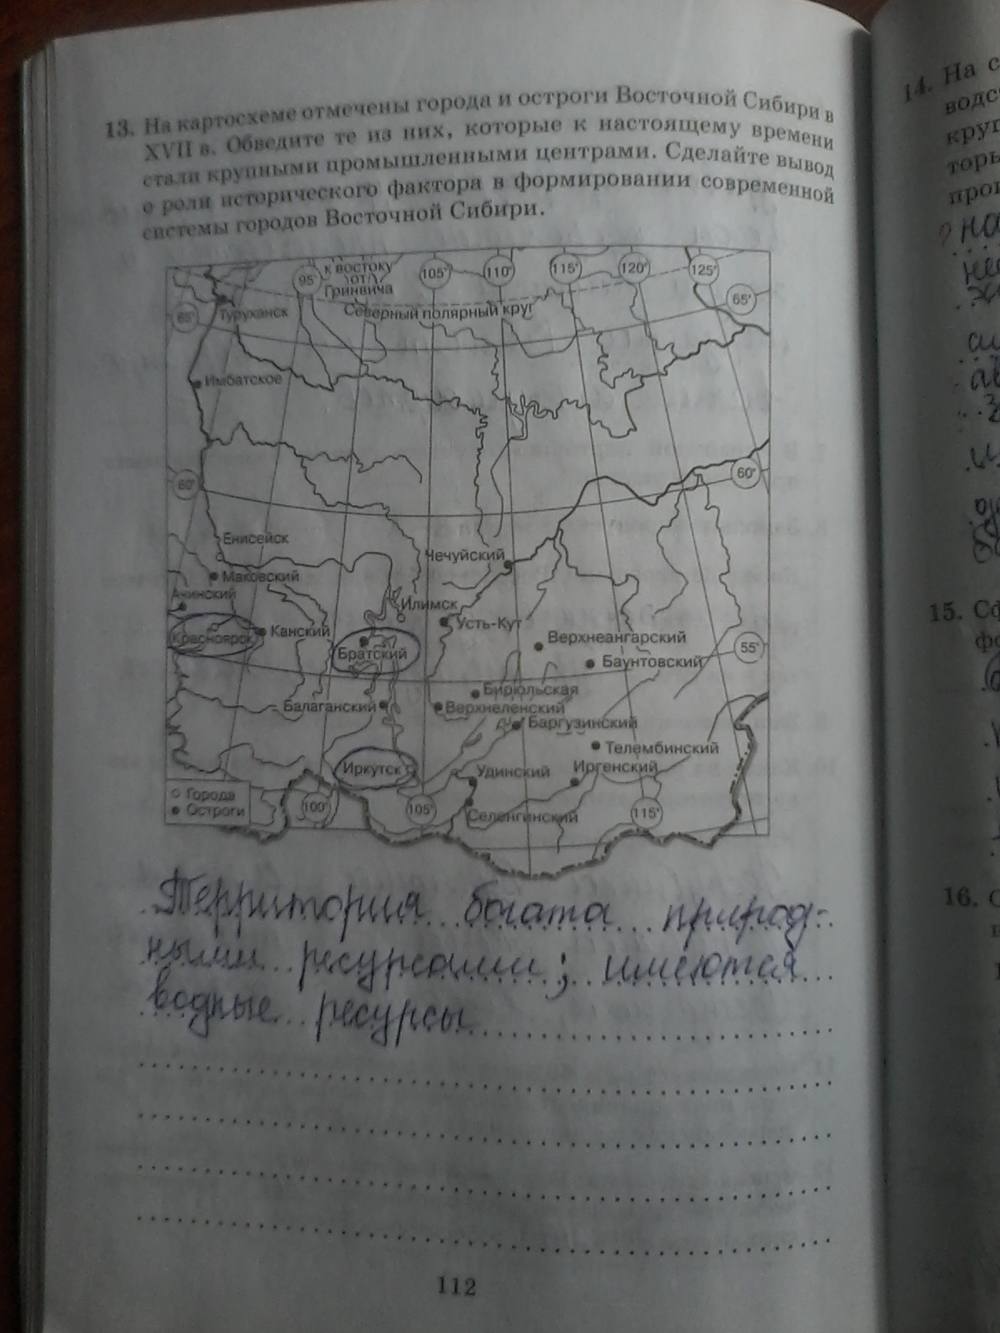 13. На картосхеме отмечены города и остроги Восточной Сибири в
XVII в. Обведите те из них, которые к настоящему времени
стали крупными промышленными центрами. Сделайте вывод
о роли исторического фактора в формировании современной
системы городов Восточной Сибири.
95°
к востоку
от
Гринвича
105°
110°
115°
120°
125°
65°
Туруханск
Северный полярный круг
65°
Имбатское
60°
60°
Енисейск
Чечуйский
Маковский
Ачинский
Илимск
Усть-Кут
Красноярск
Канский
Братский
Верхнеангарский
55°
Баунтовский
Бирюльская
Балаганский
Верхнеленский
Баргузинский
Телембинский
Иркутск
Удинский
Иргенский
Города
Остроги
100°
105°
Селенгинский
115°
Территория богата природ-
ными ресурсами; имеются
водные ресурсы
112
14. На с
15.
16.